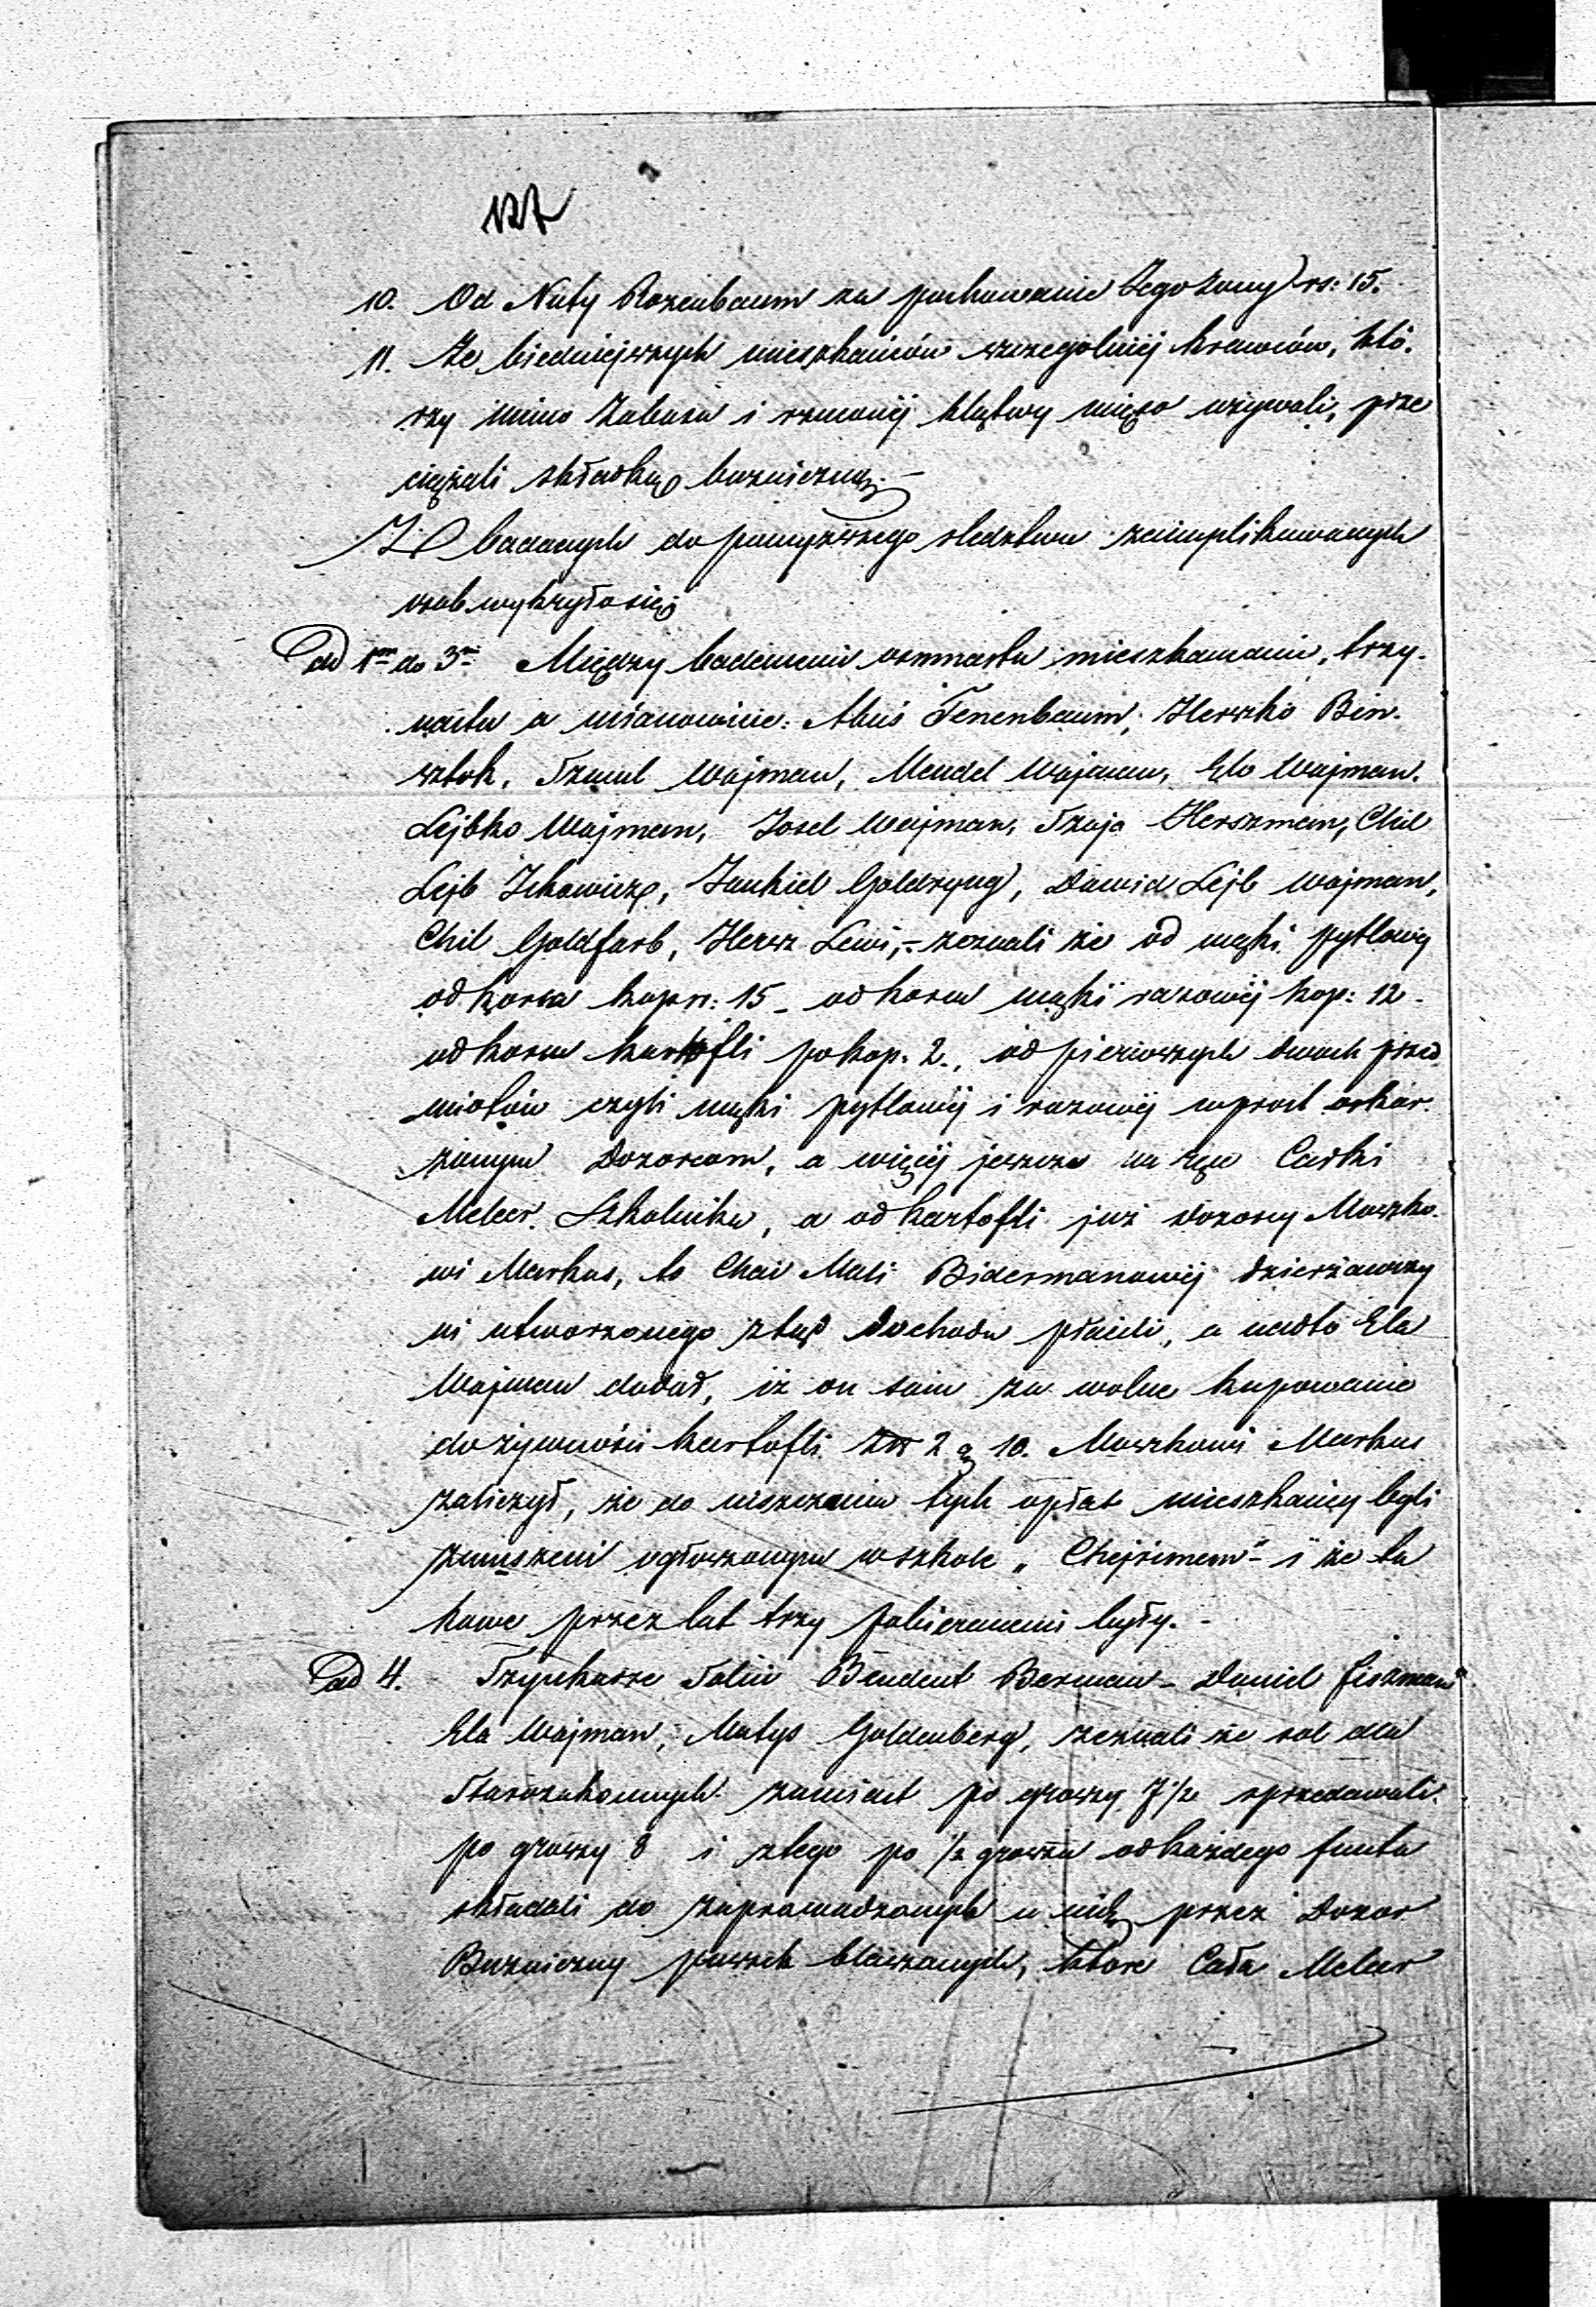 127
10. Od Nuty Rozenbaum za pochowanie Jego żony rs: 15.
11. Że biedniejszych mieszkańców szczegolniej krawców, któ-
rzy mimo zakazu i rzuconej klątwy mięso używali, prze
ciążali składką bużniczną. –
Z badanych do powyższego sledztwa zaimplikowanych
osob wykryło się
ad 1m do 3m Między badanemi osmnastu mieszkańcami, trzy-
nastu a mianowicie: Abuś Tenenbaum, Herszko Bin-
sztok, Szmul Wajman, Mendel Wajman, Elo Wajman.
Lejbko Wajman, Josel Wajman, Szaja Herszman, Chil
Lejb Ickowicz, Jankiel Goldzyng, Dawid Lejb Wajman,
Chil Goldfarb, Hersz Lewi, – zeznali że od mąki pytlowej
od korca kop sr: 15 – od korca mąki razowej kop: 12 –
od korca kartofli po kop. 2., od pierwszych dwóch przed
miotów czyli mąki pytlowej i razowej wprost oskar-
żonym Dozorcom, a więcej jeszcze na ręce Całki
Melcer Szkolnika, a od kartofli już dozorcy Moszko-
wi Markus, to Chai Mali Bidermanowej dzierżawczy
ni utworzonego ztąd dochodu płacili, a nadto Ela
Wajman dodał, iż on sam za wolne kupowanie
do żywności kartofli złt 2 g 10. Moszkowi Markus
zaliczył, że do uiszczania tych opłat mieszkańcy byli
zmuszeni ogłoszonym w szkole „Chejrimem" – i że ta
kowe przez lat trzy pobieranemi były. –
ad 4. Szynkarze Solni Bendent Berman – Daniel Fiszman
Ela Wajman, Matys Goldenberg, zeznali że sol dla
Starozakonnych zamiast po groszy 7½ sprzedawali
po groszy 8 i ztego po ½ grosza od każdego funta
składali do zaprowadzonych u nich przez Dozor
Bużniczny puszek blaszanych, ktore Całka Melcer